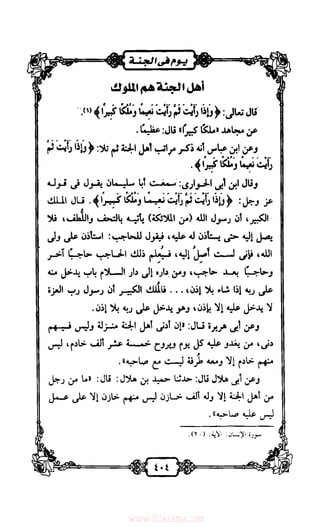 يوم في الجنة
أهل الجنة هم الملوك
قال تعالى: ﴿وَإِذَا رَأَيْتَ ثَمَّ رَأَيْتَ نَعِيمًا وَمُلْكًا كَبِيرًا﴾(١).
عن مجاهد «مُلكًا كبيرًا» قال: عظيمًا.
وعن ابن عباس أنه ذكر مراتب أهل الجنة ثم تلا: ﴿وَإِذَا رَأَيْتَ ثَمَّ
رَأَيْتَ نَعِيمًا وَمُلْكًا كَبِيرًا﴾.
وقال ابن أبي الحوارى: سمعت أبا سليمان يقول في قوله
عز وجل: ﴿وَإِذَا رَأَيْتَ ثَمَّ رَأَيْتَ نَعِيمًا وَمُلْكًا كَبِيرًا﴾. قال الملك
الكبير، أن رسول الله (من الملائكة) يأتيه بالتحف واللُّطف، فلا
يصل إليه حتى يستأذن له عليه، فيقول للحاجب: استأذن على ولى
الله، فإنى لست أصل إليه، فيُعلم ذلك الحاجب حاجبًا آخر
وحاجبًا بعد حاجب، ومن داره إلى دار السلام باب يدخل منه
على ربه إذا شاء بلا إذن، ... فالملك الكبير أن رسول رب العزة
لا يدخل عليه إلا بإذن، وهو يدخل على ربه بلا إذن.
وعن أبى هريرة قال: «إن أدنى أهل الجنة منزلة وليس فيهم
دنى، من يغدو عليه كل يوم ويروح خمسة عشر ألف خادم، ليس
منهم خادم إلا ومعه طُرفة ليست مع صاحبه».
وعن أبى هلال قال: حدثنا حميد بن هلال: قال: «ما من رجل
من أهل الجنة إلا وله ألف خازن ليس منهم خازن إلا على عمل
ليس عليه صاحبه».
(١) سورة الإنسان: الآية: (٢٠).
٤٠٤
www.ibtesama.com